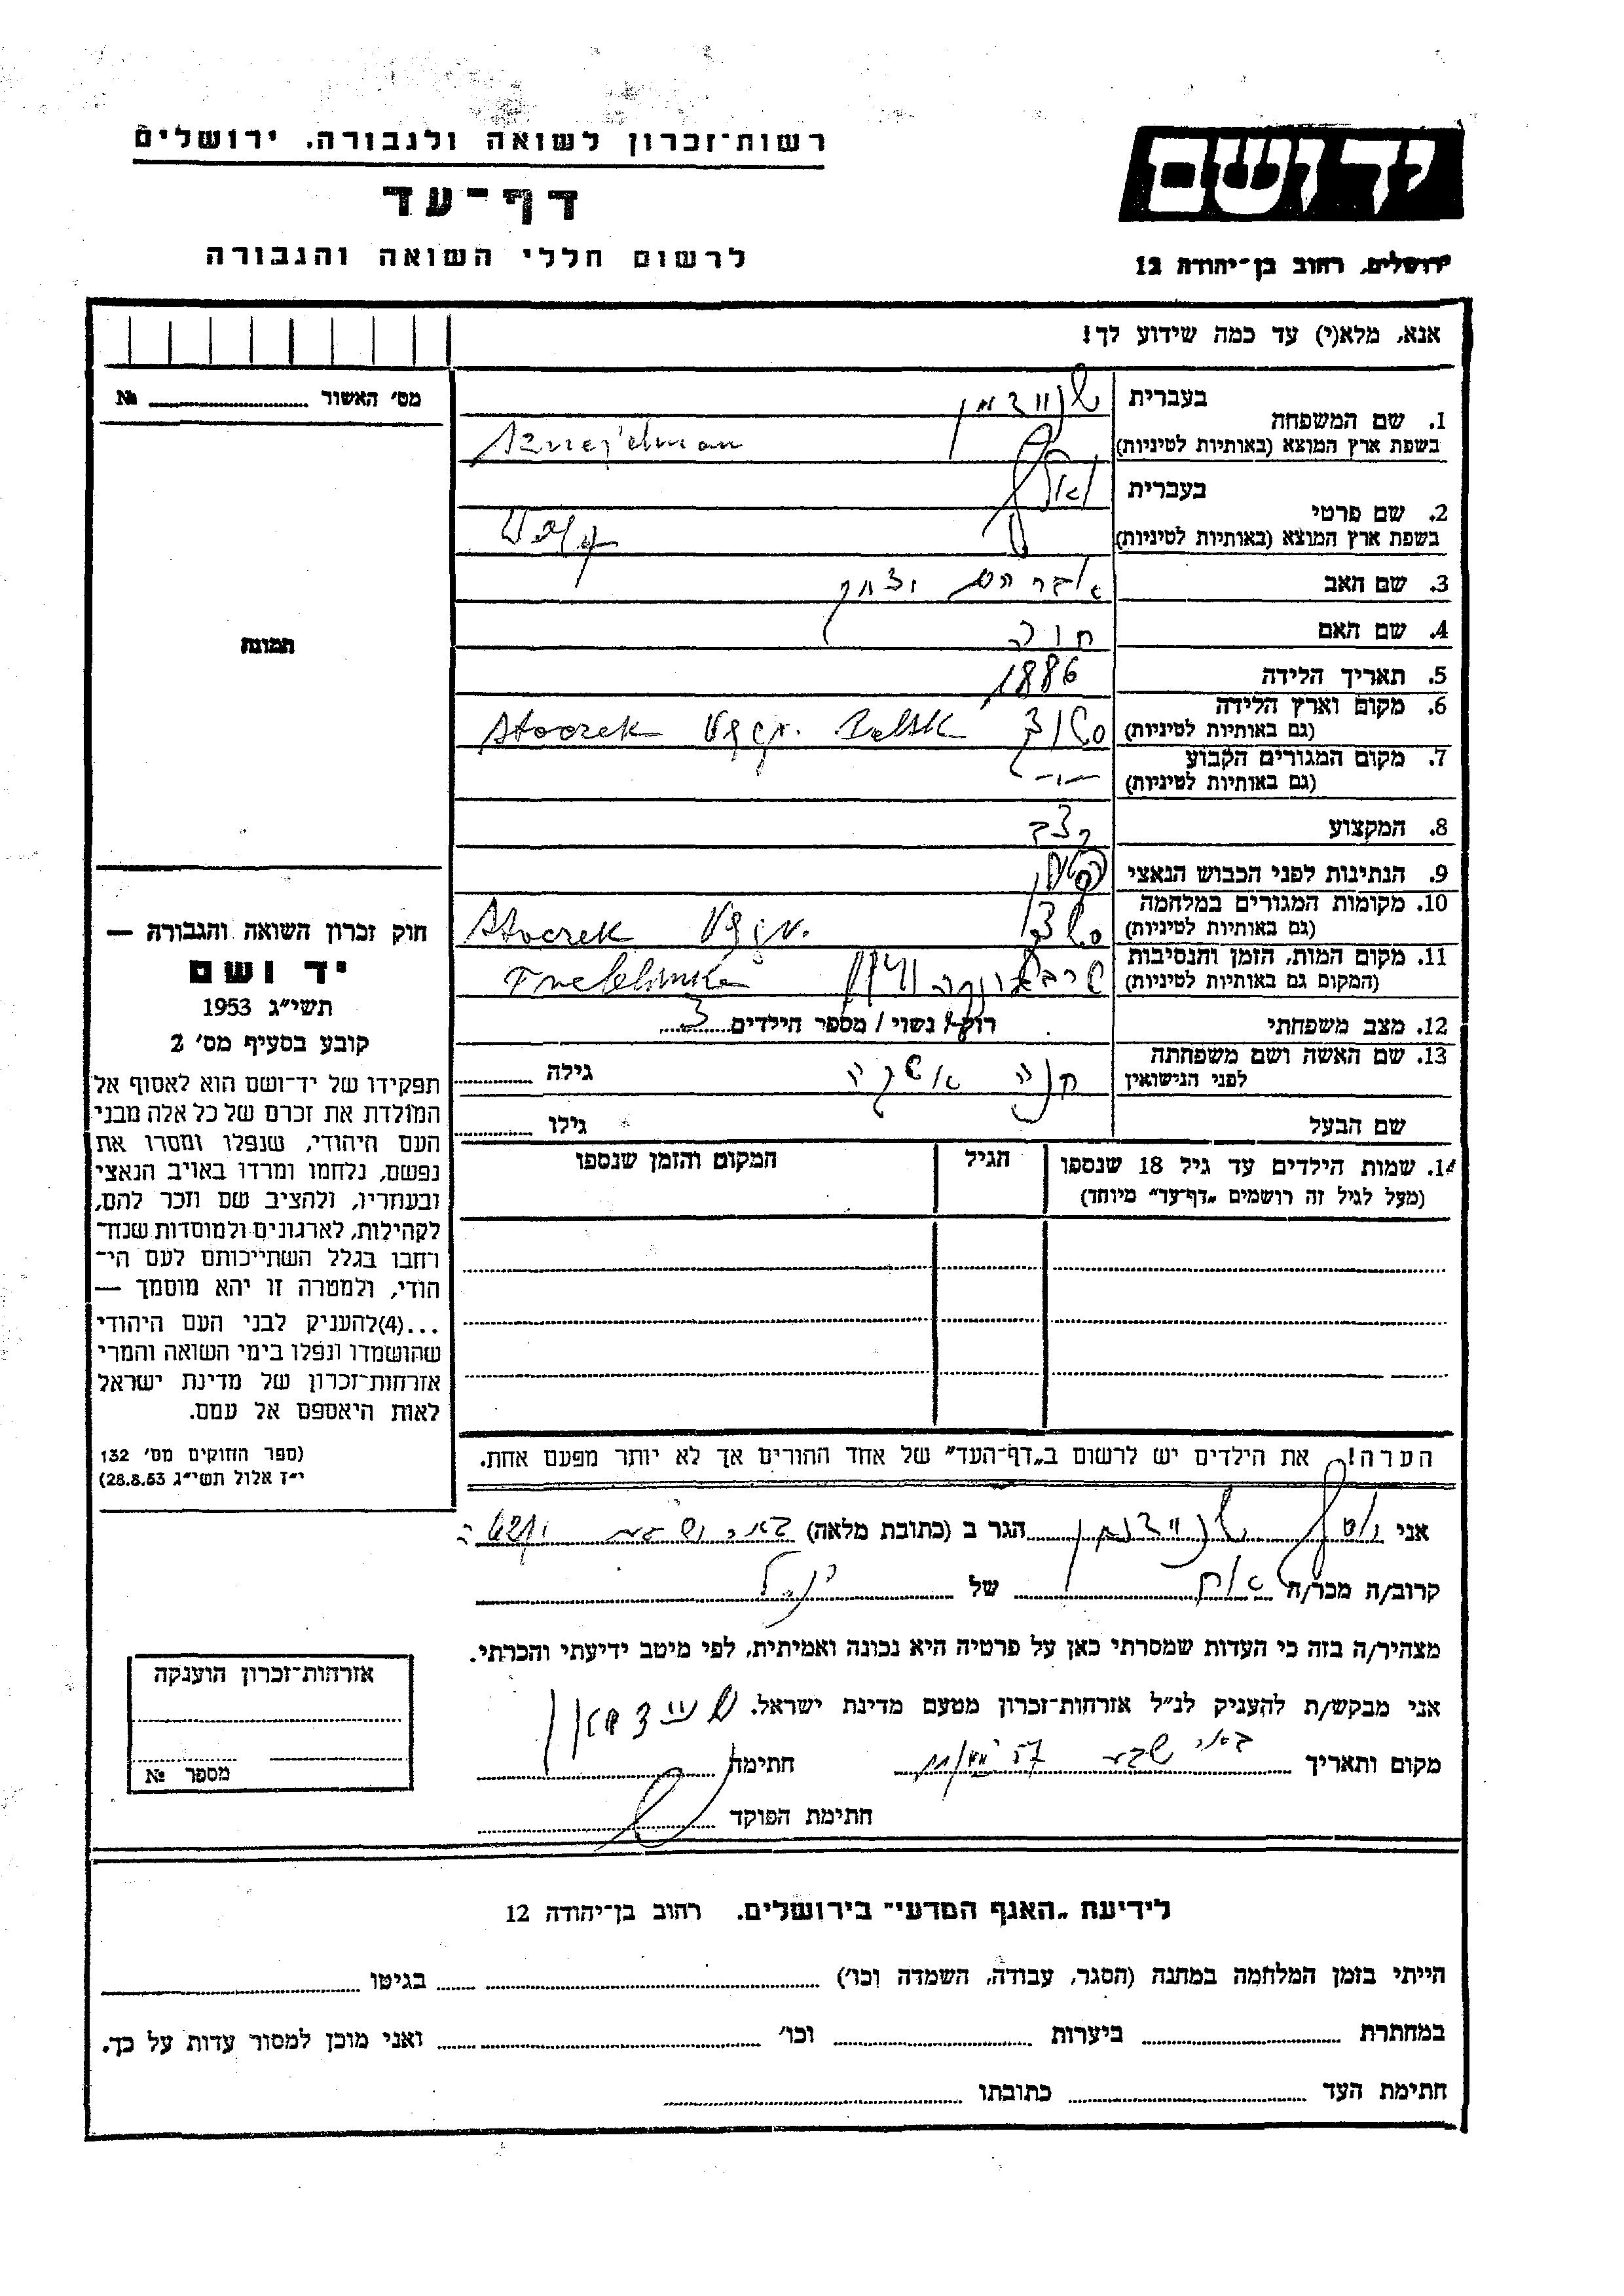 רשות־זכרון לשואה ולגבורה. ירושלים
דף־עד
לרשום חללי השואה והגבורה
יד ושם
ירושלים, רחוב בן־יהודה 12
אנא, מלא(י) עד כמה שידוע לך!
מס׳ האשור № 
1. שם המשפחה
בעברית
בשפת ארץ המוצא (באותיות לטיניות)
Sznejdman
2. שם פרטי
בעברית
בשפת ארץ המוצא (באותיות לטיניות)
3. שם האב
אברהם יצחק
4. שם האם
חוה
5. תאריך הלידה
1886
6. מקום וארץ הלידה
(גם באותיות לטיניות)
Stoczek Węgr.
7. מקום המגורים הקבוע
(גם באותיות לטיניות)
8. המקצוע
קצב
9. הנתינות לפני הכבוש הנאצי
10. מקומות המגורים במלחמה
(גם באותיות לטיניות)
Stoczek Węgr.
11. מקום המות, הזמן והנסיבות
(המקום גם באותיות לטיניות)
טרבלינקה Treblinka
12. מצב משפחתי
רוק / נשוי / מספר הילדים 3
13. שם האשה ושם משפחתה
לפני הנישואין
חנה גילה
שם הבעל גילו
14. שמות הילדים עד גיל 18 שנספו
(מעל לגיל זה רושמים „דף־עד״ מיוחד)
הגיל
המקום והזמן שנספו
הערה! את הילדים יש לרשום ב„דף־העד״ של אחד ההורים אך לא יותר מפעם אחת.
תמונה
חוק זכרון השואה והגבורה —
יד ושם
תשי״ג 1953
קובע בסעיף מס׳ 2
תפקידו של יד־ושם הוא לאסוף אל
המולדת את זכרם של כל אלה מבני
העם היהודי, שנפלו ומסרו את
נפשם, נלחמו ומרדו באויב הנאצי
ובעוזריו, ולהציב שם וזכר להם,
לקהילות, לארגונים ולמוסדות שנח־
רחבו בגלל השתייכותם לעם הי־
הודי, ולמטרה זו יהא מוסמך —
...(4)להעניק לבני העם היהודי
שהושמדו ונפלו בימי השואה והמרי
אזרחות־זכרון של מדינת ישראל
לאות היאספם אל עמם.
(ספר החוקים מס׳ 132
י״ז אלול תשי״ג 28.8.53)
אני הגר ב (כתובת מלאה) באר שבע
קרוב/ה מכר/ה של
מצהיר/ה בזה כי העדות שמסרתי כאן על פרטיה היא נכונה ואמיתית, לפי מיטב ידיעתי והכרתי.
אני מבקש/ת להעניק לנ״ל אזרחות־זכרון מטעם מדינת ישראל.
מקום ותאריך באר שבע חתימה
חתימת הפוקד
אזרחות־זכרון הוענקה
מספר №
לידיעת „האגף המדעי״ בירושלים. רחוב בן־יהודה 12
הייתי בזמן המלחמה במחנה (הסגר, עבודה, השמדה וכו׳) בגיטו
במחתרת ביערות וכו׳ ואני מוכן למסור עדות על כך.
חתימת העד כתובתו